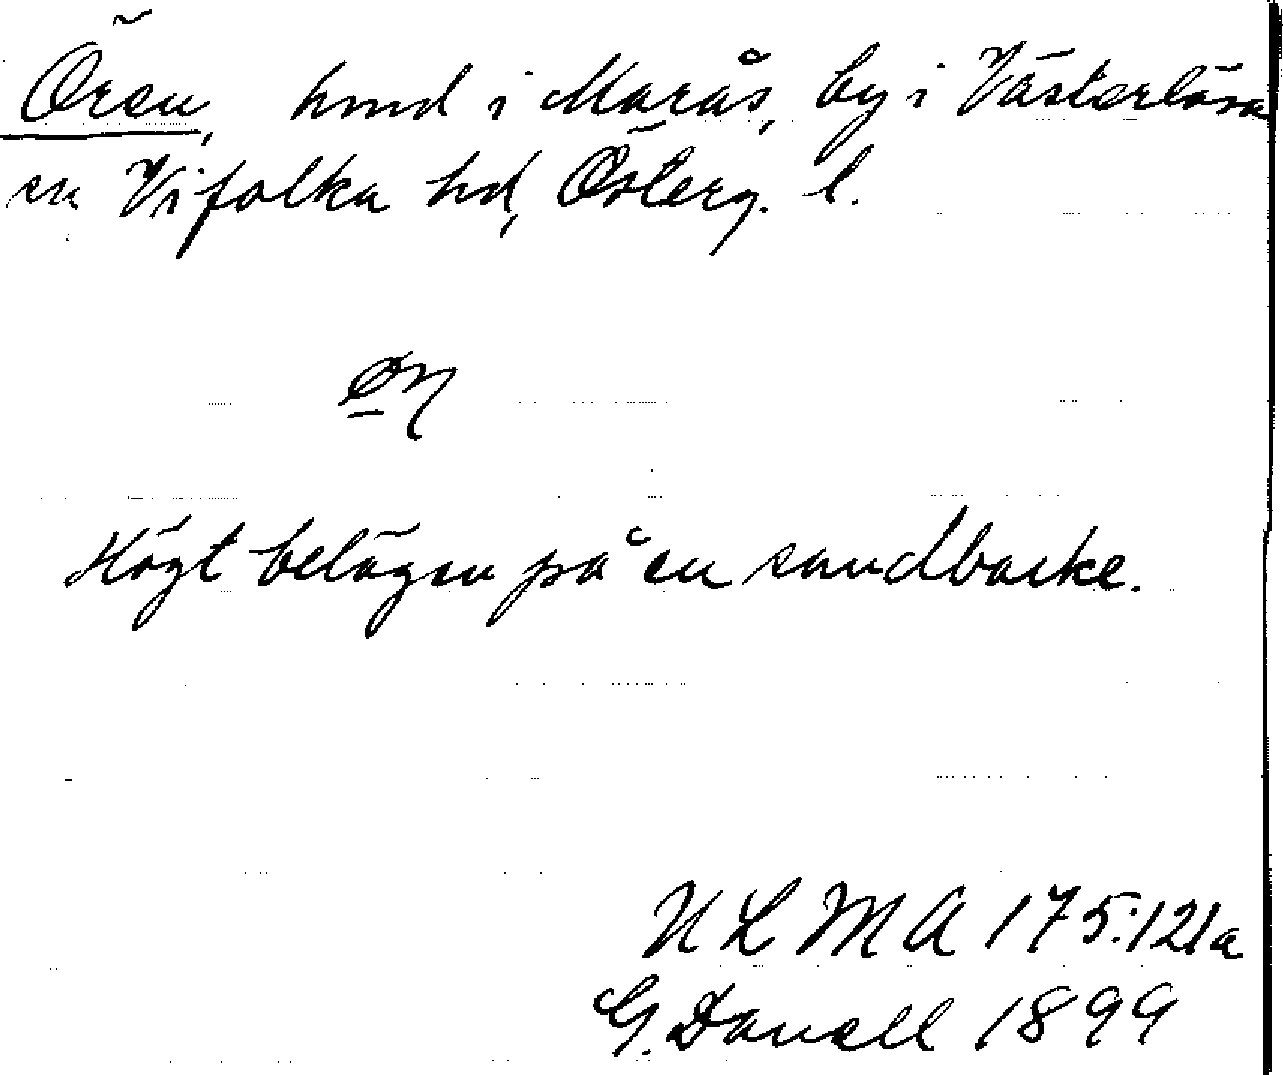 Ören, hmd i Marås, by i Västerlösa
sn Vifolka hd, Österg. l.
Högt belägen på en sandbacke.
ULMA 175:121a
G. Danell 1899